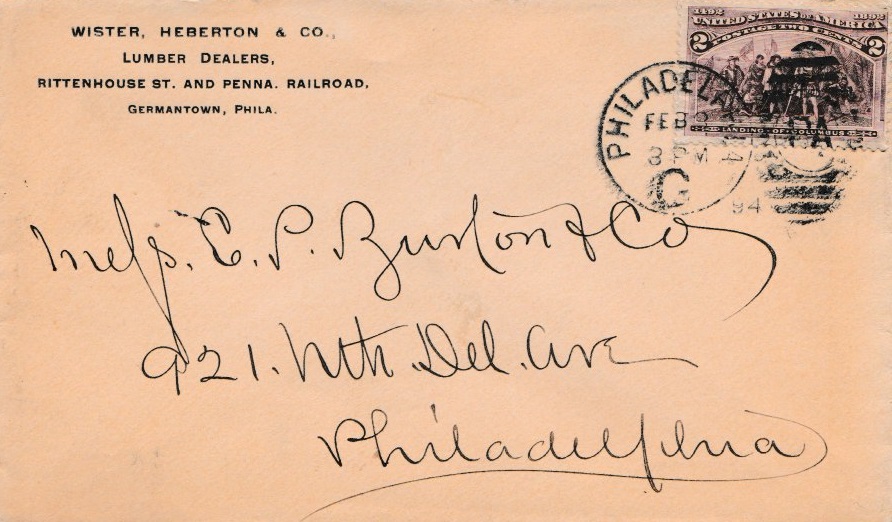 WISTER, HEBERTON & CO.,
LUMBER DEALERS,
RITTENHOUSE ST. AND PENNA. RAILROAD,
GERMANTOWN, PHILA.
1492 1892
UNITED STATES OF AMERICA
POSTAGE TWO CENTS
2 2
LANDING OF COLUMBUS
PHILADELA
FEB
3 PM
G
94
Mess. E. P. Burton & Co
921. Nth. Del. Ave
Philadelphia